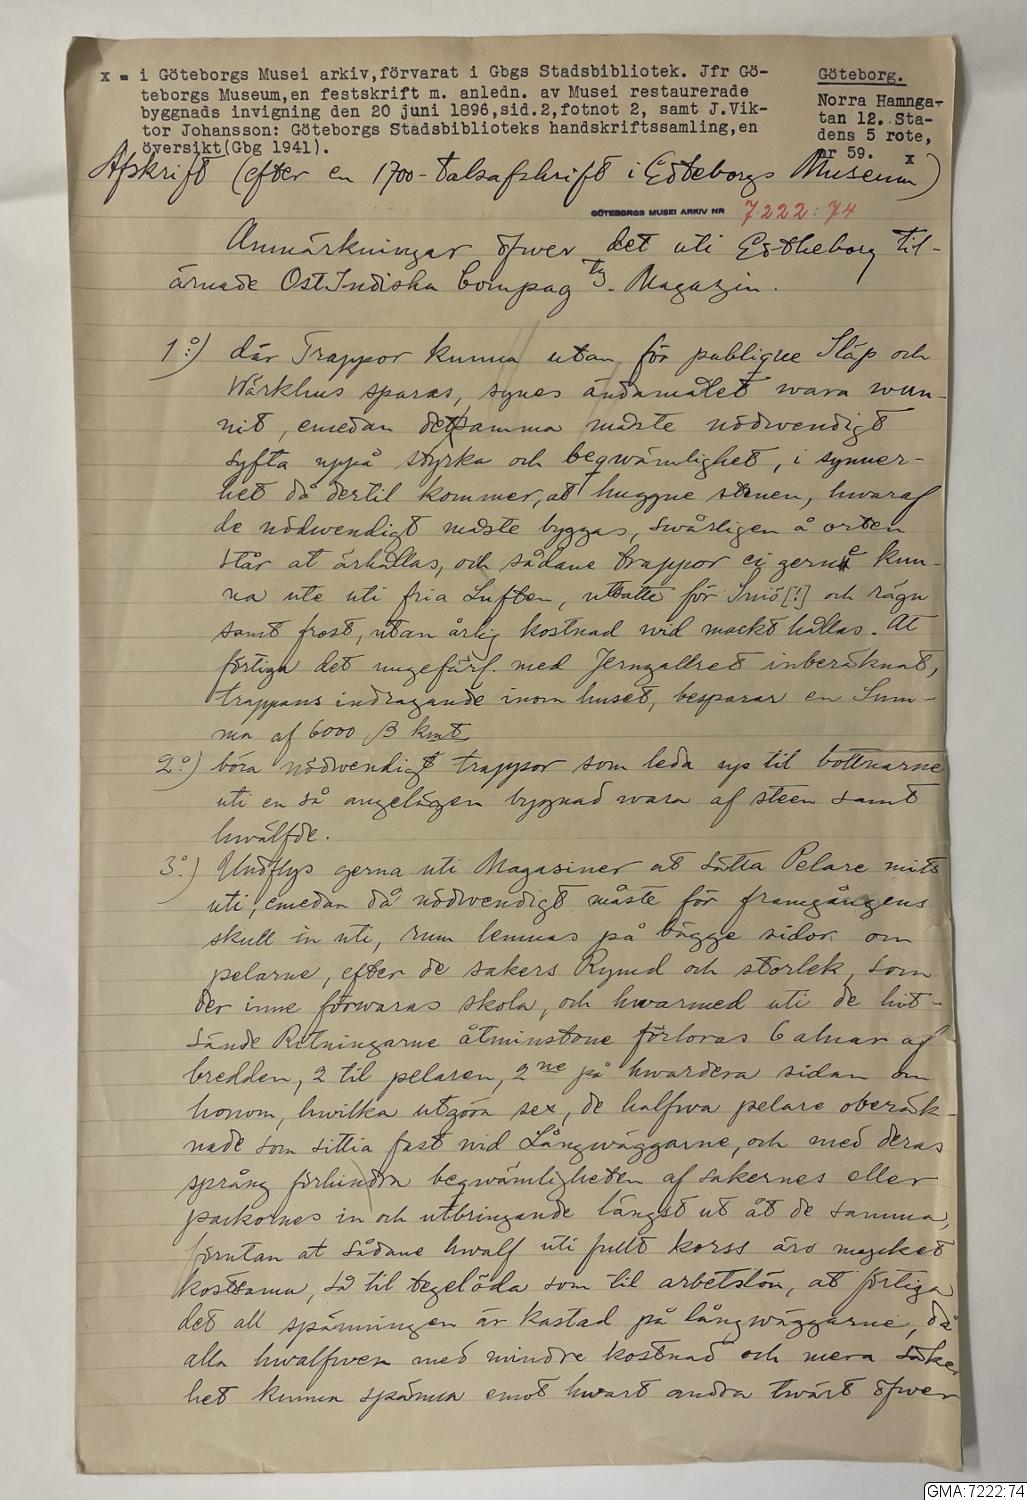 x - i Göteborgs Musei arkiv, förvarat i Gbgs Stadsbibliotek. Jfr Gö-
teborgs Museum, en festskrift m. anledn. av Musei restaurerade
byggnads invigning den 20 juni 1896, sid. 2, fotnot 2, samt J.Vik-
tor Johansson: Göteborgs Stadsbiblioteks handskriftssamling, en
översikt (Gbg 1941).
Göteborg.
Norra Hamnga-
tan 12. Sta-
dens 5 rote,
nr 59. x
Afskrift (efter en 1700-talsafskrift i Göteborgs Museum)
GÖTEBORGS MUSEI ARKIV NR 7222:74
Anmärkningar öfwer det uti Götheborg til-
ärnade OstIndiska Compag ts. Magazin.
1:o) där Trappor kunna utan för publique Släp och
Wärkhus sparas, synes ändamålet wara wun-
nit, emedan det samma måste nödwendigt
syfta uppå styrka och beqwämlighet, i synner-
het då dertil kommer, at huggne stenen, hwaraf
de nödwendigt måste byggas, swårligen å orten
står at ärhållas, och sådane trappor ei gerna kun-
na ute uti fria Luften, utsatte för Sniö [!] och rägn
samt frost, utan årlig kostnad wid mackt hållas. At
förtiga det ungefärl. med Jerngallret inberäknat,
trappans indragande inom huset, besparar en Sum-
ma af 6000 β kmt
2:o) böra nödwendigt trappor som leda up til bottnarne
uti en så angelägen byggnad wara af steen samt
hwälfde.
3:o) Undflys gerna uti Magasiner at sätta Pelare mitt
uti, emedan då nödwendigt måste för framgångens
skull in uti, rum lemnas på bägge sidor om
pelarne, efter de sakers Rymd och storlek, som
der inne förwaras skola, och hwarmed uti de hit-
sände Ritningarne åtminstone förloras 6 alnar af
bredden, 2 til pelaren, 2ne på hwardera sidan om
honom, hwilka utgöra sex, de halfwa pelare oberäk-
nade som sittia fast wid Långwäggarne, och med deras
språng förhindra beqwämligheten af sakernes eller
packornes in och utbringande längst ut åt de samma,
förutan at sådane hwalf uti fullt korss äro mycket
kostsama, så til tegelåda som til arbetslön, at förtiga
det all spänningen är kastad på långwäggarne, då
alla hwalfwen med mindre kostnad och mera säker
het kunna spänna emot hwart andra twärt öfwer
GMA:7222:74